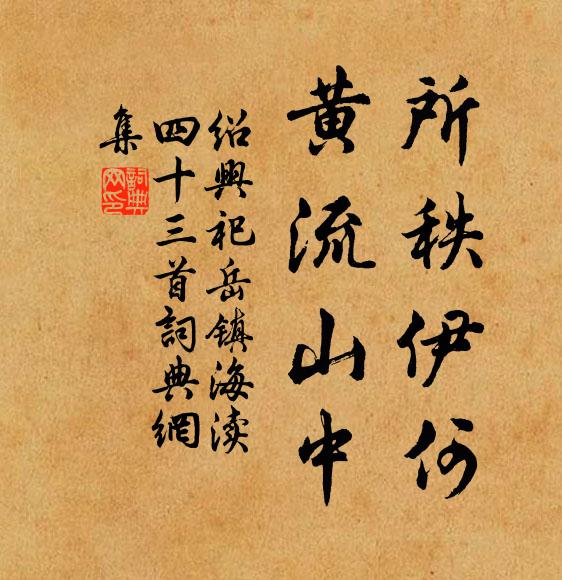 所秩伊何
黄流山中
绍興祀岳镇海渎
四十三首詞典網
集
詞典
网印